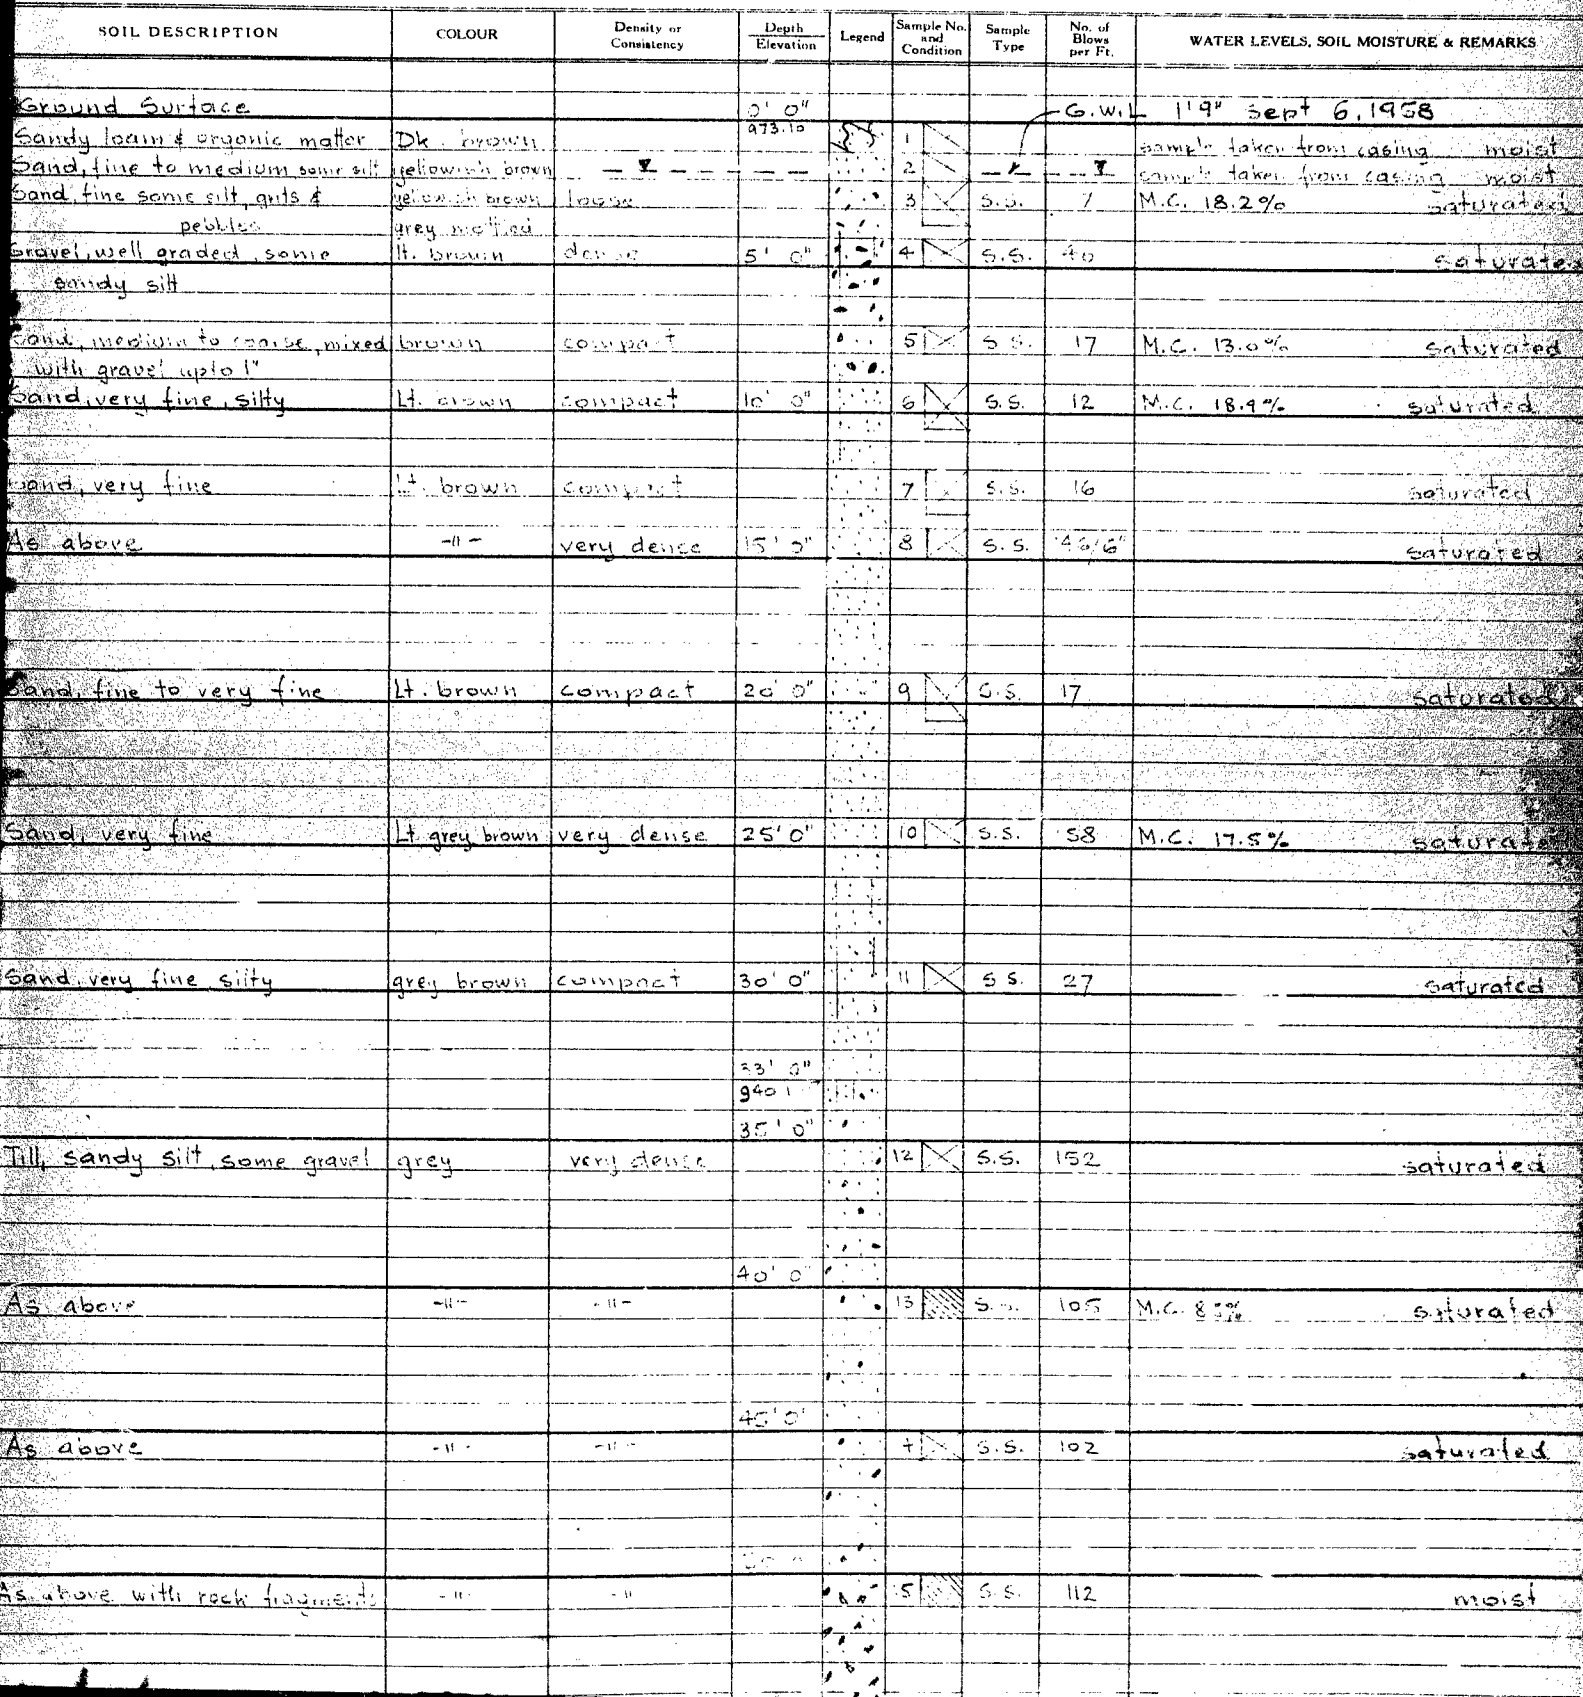 SOIL DESCRIPTION COLOUR Density or Consistency Depth Elevation Legend Sample No. and Condition Sample Type No. of Blows per Ft. WATER LEVELS, SOIL MOISTURE & REMARKS
Ground Surface 0' 0" G.W.L 1'9" Sept 6, 1958
973.10
Sandy loam & organic matter Dk. brown 1 sample taken from casing moist
Sand, fine to medium some silt yellowish brown 2 sample taken from casing moist
Sand, fine some silt, grits & yellowish brown loose 3 S.S. 7 M.C. 18.2% saturated
pebbles grey mottled
Gravel, well graded, some lt. brown dense 5' 0" 4 S.S. 40 saturated
sandy silt
Sand, medium to coarse, mixed brown compact 5 S.S. 17 M.C. 13.0% saturated
with gravel upto 1"
Sand, very fine, silty Lt. brown compact 10' 0" 6 S.S. 12 M.C. 18.4% saturated
Sand, very fine Lt. brown compact 7 S.S. 16 saturated
As above -"- very dence 15' 0" 8 S.S. saturated
Sand, fine to very fine Lt. brown compact 20' 0" 9 17 saturated
Sand, very fine Lt. grey brown very dense 25' 0" 10 S.S. 58 M.C. 17.5% saturated
Sand, very fine silty grey brown compact 30' 0" 11 S.S. 27 saturated
33' 0"
940.1
35' 0"
Till, sandy silt, some gravel grey very dence 12 S.S. 152 saturated
40' 0"
As above -"- -"- 13 S.S. 105 M.C. saturated
45' 0"
As above -"- -"- S.S. 102 saturated
As above with rock fragments -"- -"- 15 S.S. 112 moist